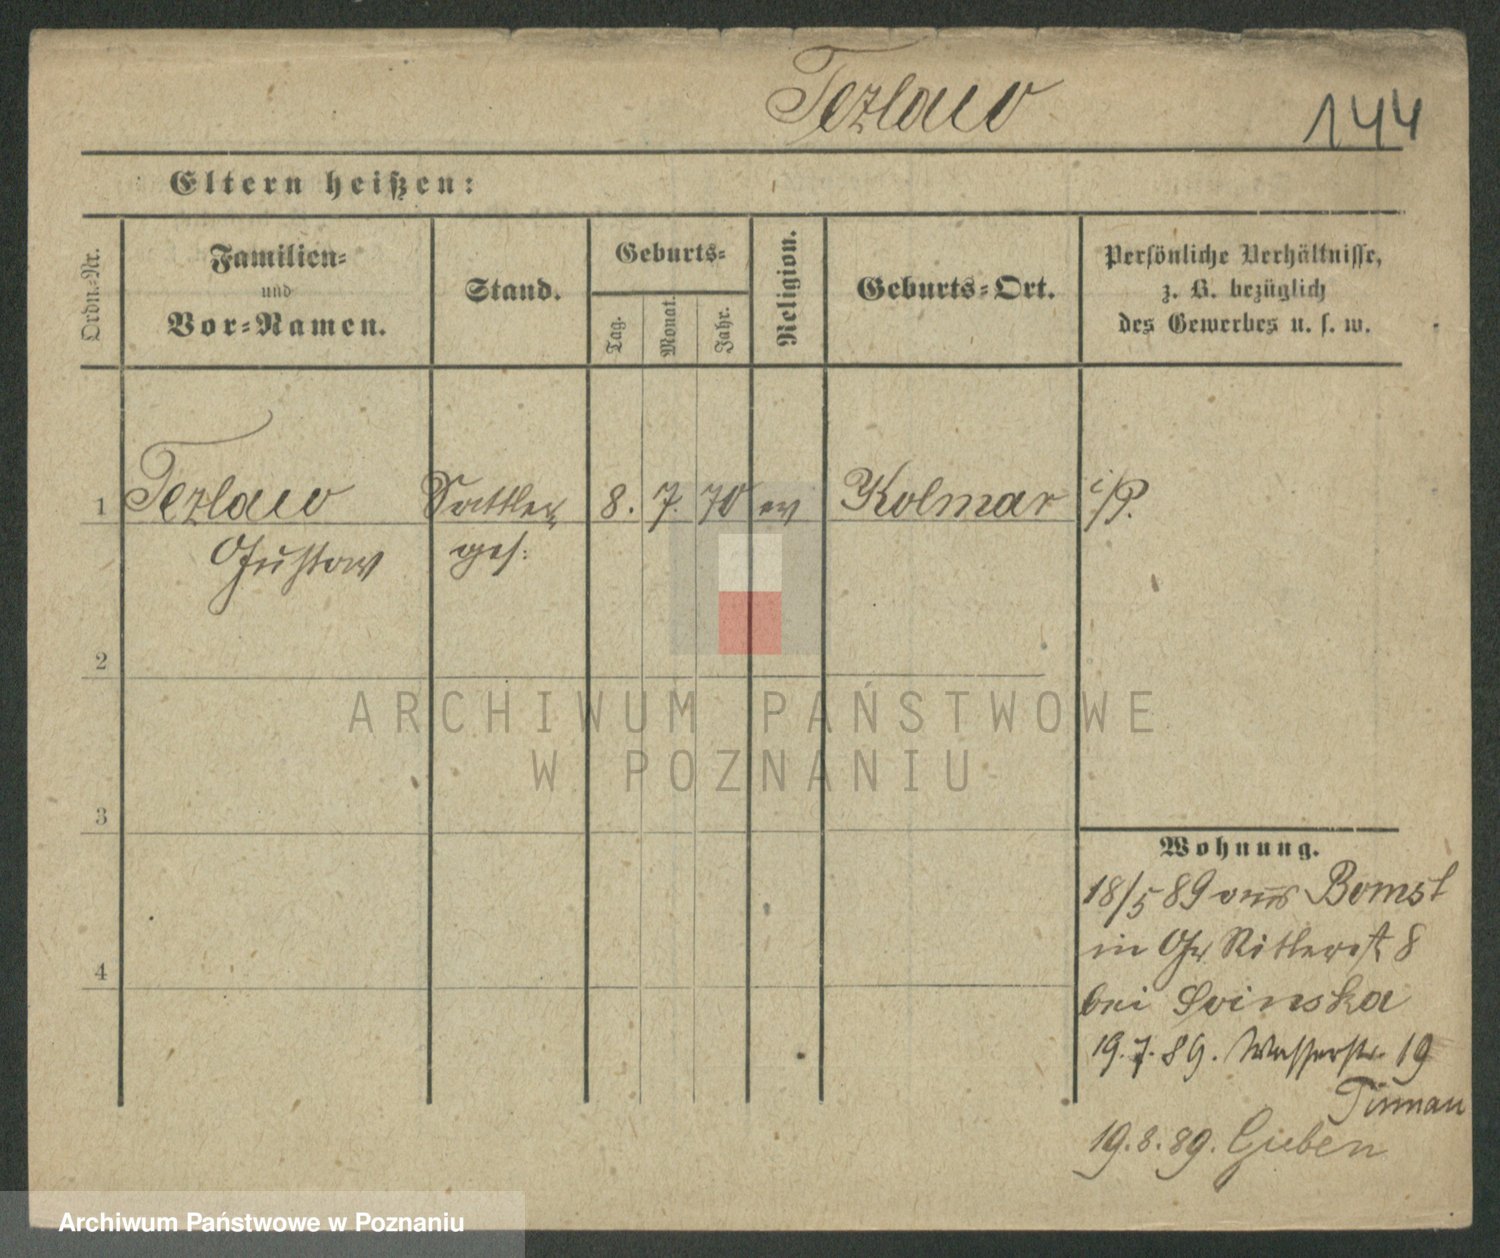 Tezlaw
144
Eltern heißen:
Ordn.-Nr.
Familien-
und
Vor-Namen.
Stand.
Geburts-
Tag.
Monat.
Jahr.
Religion.
Geburts-Ort.
Persönliche Verhältnisse,
z. B. bezüglich
des Gewerbes u. s. w.
1 Tezlaw Sattler 8. 7. 70 ev Kolmar i/P.
Gustav ges:
2
ARCHIWUM PAŃSTWOWE
W POZNANIU
3
Wohnung.
18/5 89 aus Bomst
in Ritterst 8
bei Svinska
4
19.7.89. Wasserstr. 19
19.8.89. Guben
Archiwum Państwowe w Poznaniu